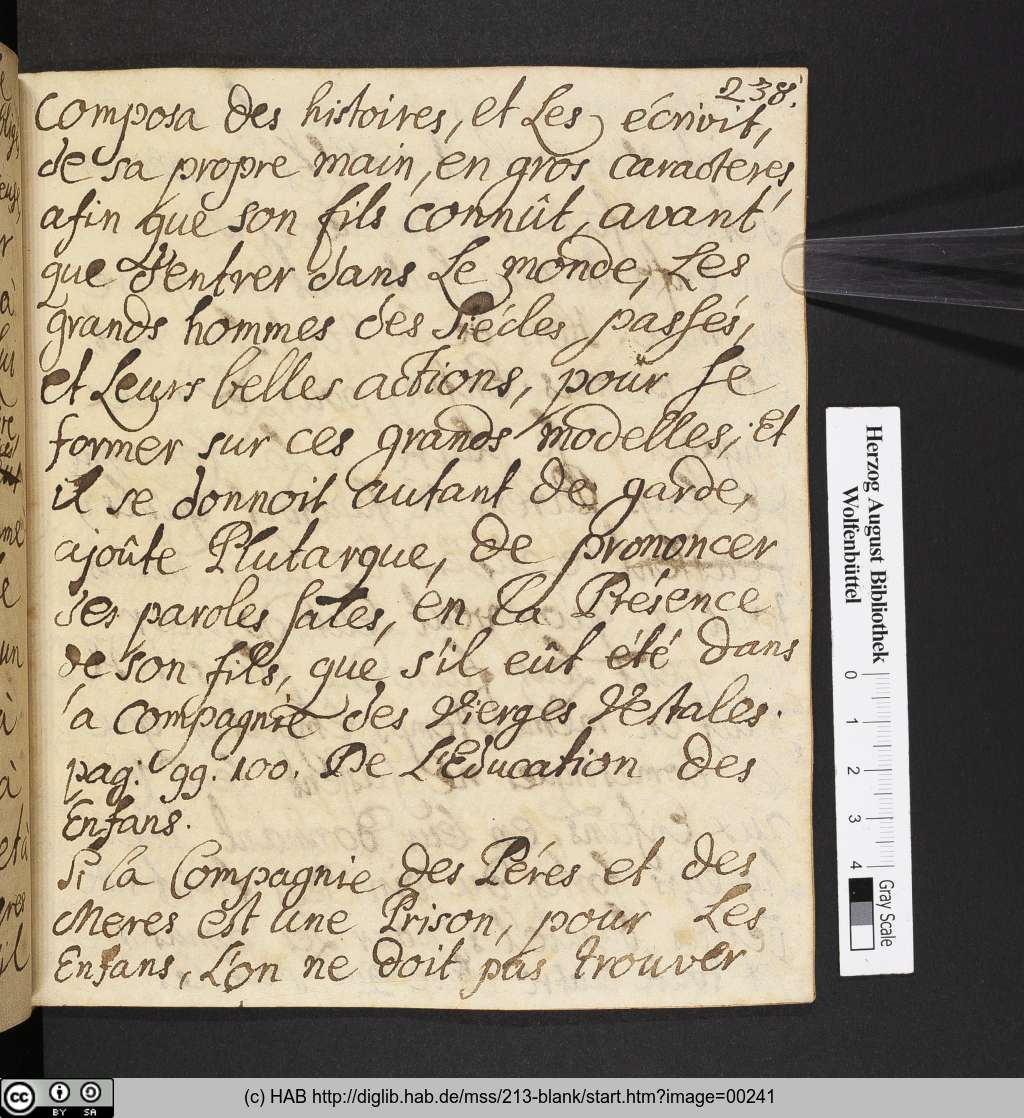 238.
Composa des histoires, et Les écrivit,
de sa propre main, en gros caracteres,
afin que son fils connût, avant
que d'entrer dans Le monde, Les
grands hommes des Siécles passés,
et Leurs belles actions, pour se
former sur ces grands modelles; et
il se donnoit autant de garde,
ajoûte Plutarque, de prononcer
des paroles sales, en la Présence
de son fils, que s'il eût été dans
la compagnie des Vierges Vestales.
pag: 99. 100. De L'Education des
Enfans.
Si la Compagnie des Péres et des
Meres est une Prison, pour Les
Enfans, L'on ne doit pas trouver
Herzog August Bibliothek
Wolfenbüttel
0 1 2 3 4
Gray Scale
(c) HAB http://diglib.hab.de/mss/213-blank/start.htm?image=00241
cc BY SA